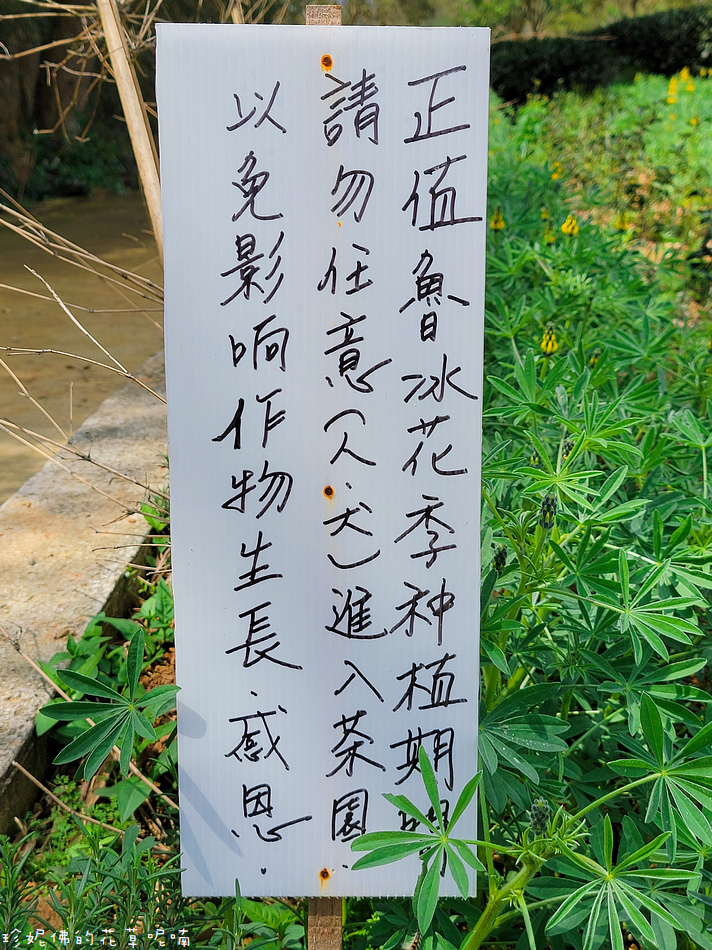 正值魯冰花季种植期間
請勿任意(人.犬)進入茶園.
以免影响作物生長.感恩.
珍妮佛的花草呢喃